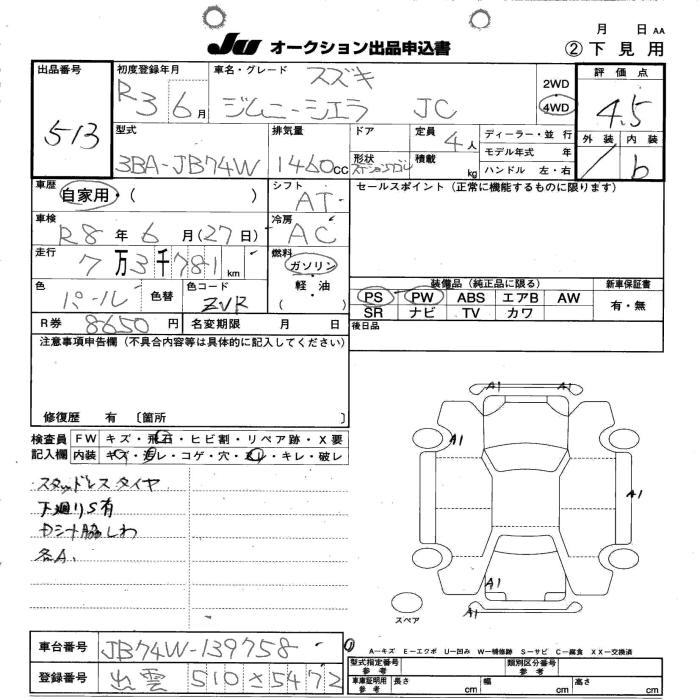 月 日 AA
JU オークション出品申込書
② 下見用
出品番号
513
初度登録年月
R3 6月
車名・グレード
スズキ
ジムニーシエラ JC
2WD
4WD
評価点
4.5
外装 内装
b
型式
3BA-JB74W
排気量
1460cc
ドア
形状
定員
4人
積載
kg
ディーラー・並行
モデル年式 年
ハンドル 左・右
車歴
自家用・( )
シフト
AT
セールスポイント(正常に機能するものに限ります)
車検
R8年6月(27日)
冷房
AC
走行
7万3千781km
燃料
ガソリン
軽油
( )
色
パール
色替
色コード
ZVR
装備品(純正品に限る)
新車保証書
PS PW ABS エアB AW
SR ナビ TV カワ
有・無
R券 8650円
名変期限 月 日
後日品
注意事項申告欄(不具合内容等は具体的に記入してください)
修復歴 有 〔箇所 〕
検査員
記入欄
FW キズ・飛石・ヒビ割・リペア跡・X要
内装 キズ・汚レ・コゲ・穴・スレ・キレ・破レ
スタッドレスタイヤ
下廻りS有
Dシート脇しわ
各A.
A1 A1
A1
A1
A1
A1
スペア
車台番号
JB74W-139758
登録番号
出雲 510 さ 5472
① A-キズ E-エクボ U-凹み W-補修跡 S-サビ C-腐食 XX-交換済
型式指定番号
参考
類別区分番号
参考
車庫証明用
参考
長さ cm 幅 cm 高さ cm